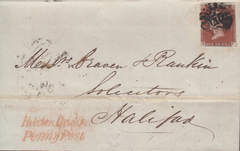 Messrs Craven & Rankin
Solicitors
Halifax
Hebden Bridge
Penny Post